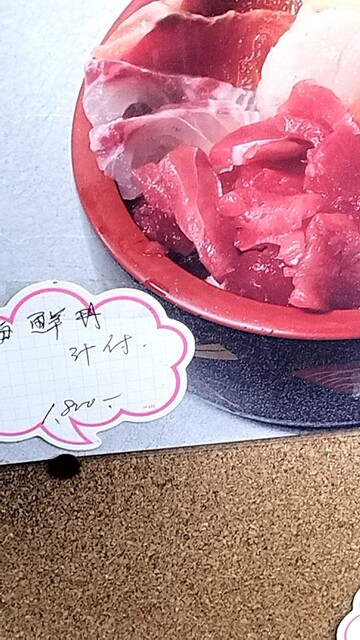 海鮮丼
汁付.
1,800-